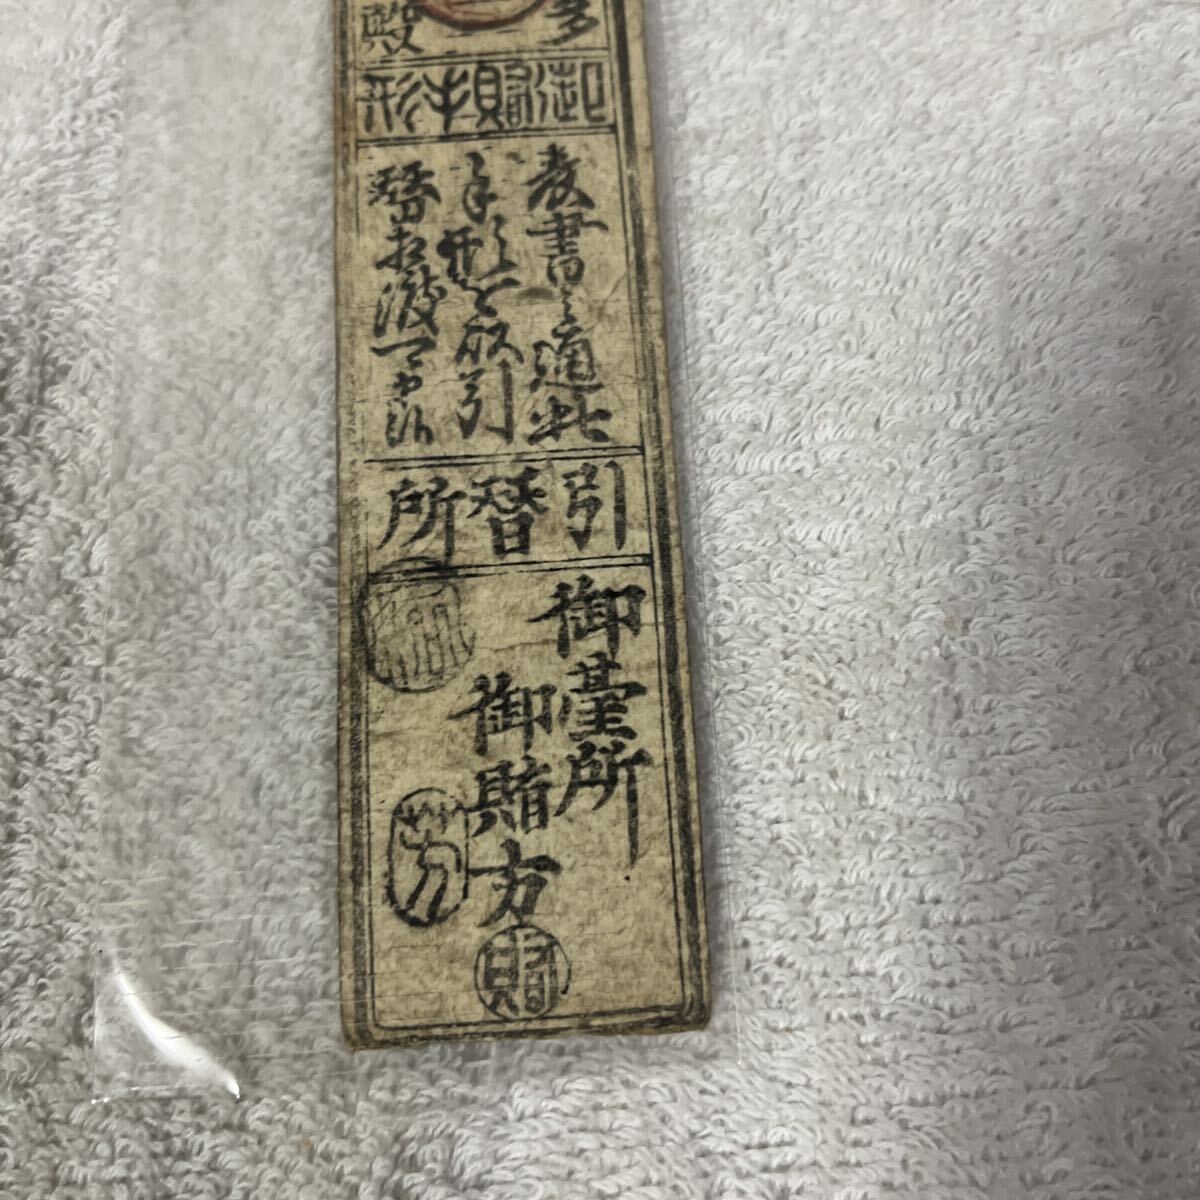 多
殿
御賄手形
表書之通此
手形を以引
替相渡可申候
引替所
御臺所
御賄方
芳
賄